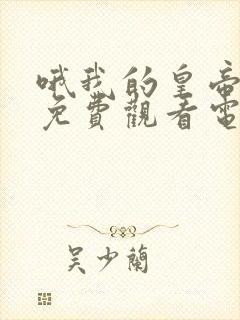 哦我的皇帝
免費觀看電
吴少蘭